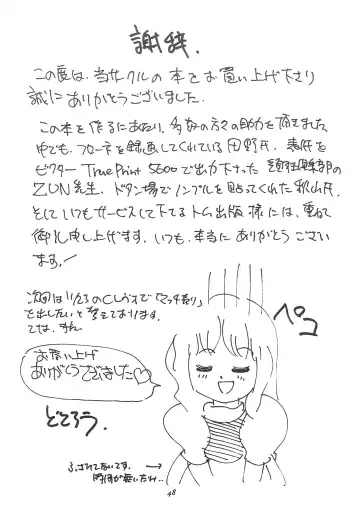 謝辞.
この度は、当サークルの本をお買い上げ下さり
誠にありがとうございました.
この本を作るにあたり、多くの方々の助力を頂きました
中でも、フロッピーを録画してくれている田野氏、表紙を
ビクターTruePrint 5600で出力下さった
ZUN先生. ドタン場でノンブルを貼ってくれた秋山氏.
そしていつもサービスして下さるトム出版様には、重ねて
御礼申し上げます. いつも、本当にありがとうござい
ます.!
次回は11/23のCレヴォで「
を出したいと考えております.
では.
ペコ
お買い上げ
ありがとうございました♡
どころう.
ふざけてないです.
時間が無いだけ..
48